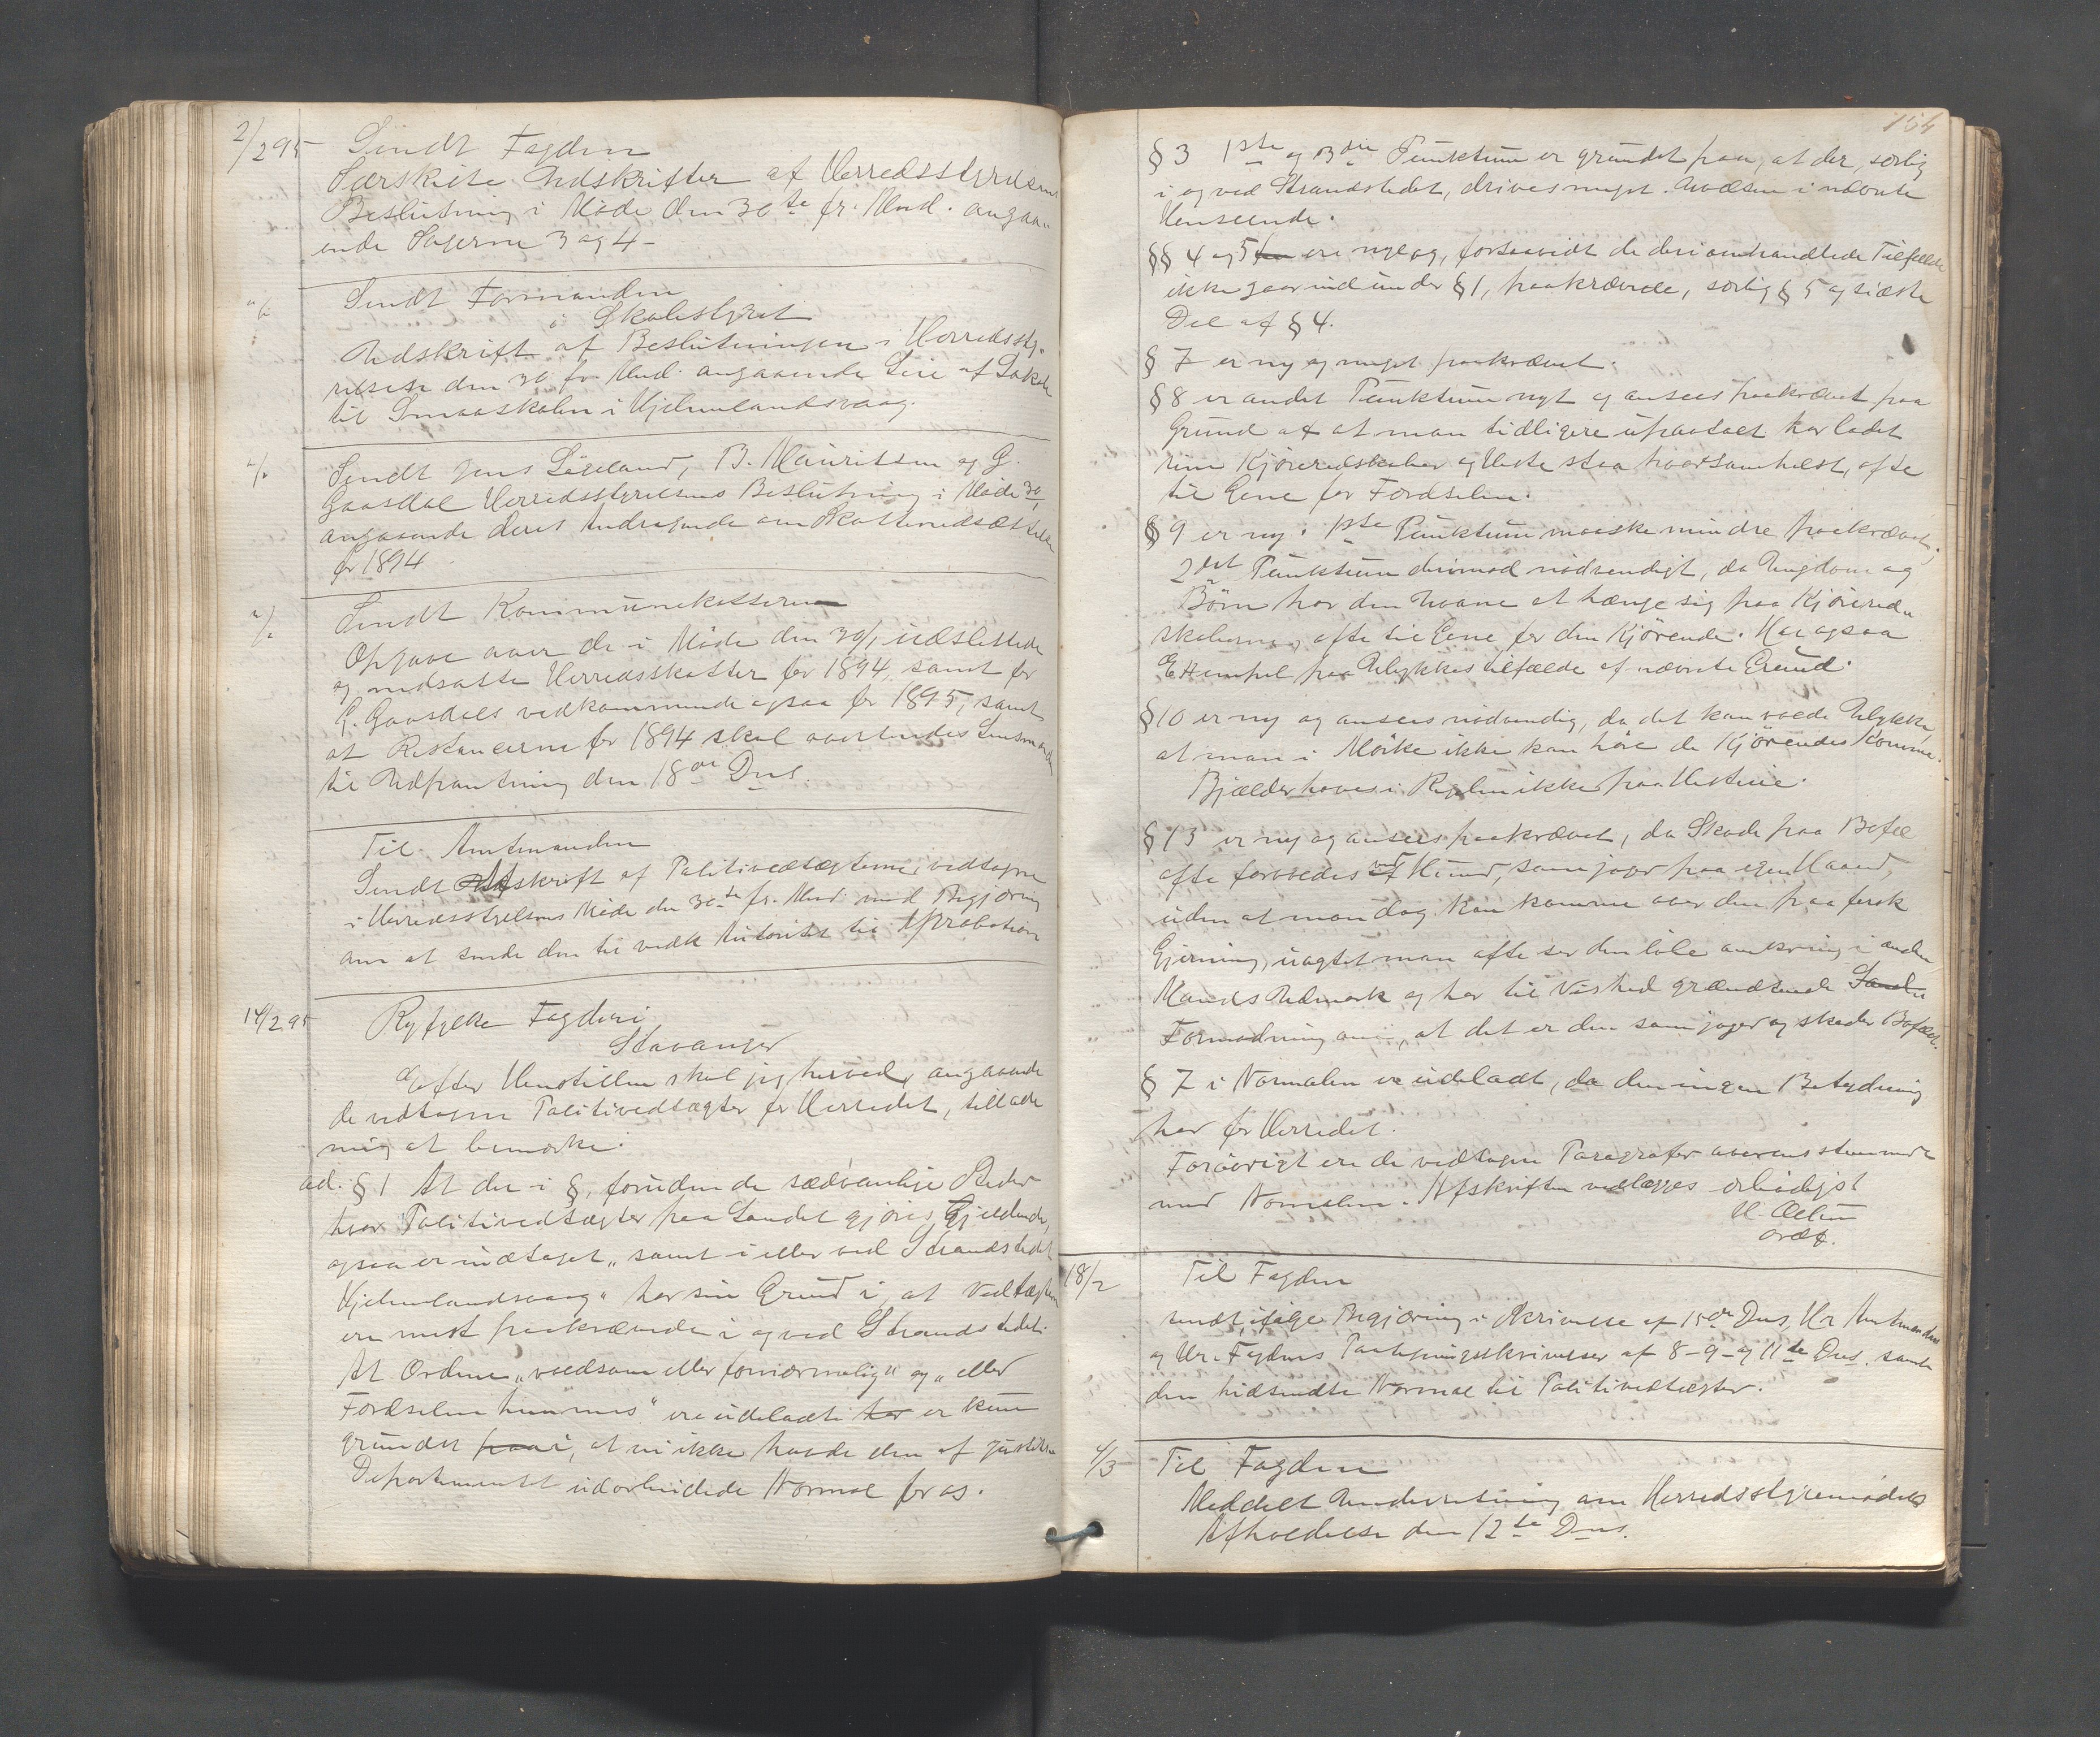 2/2 95 Sendt Fogden
Særskilte Udskrifter af Herredsstyrelsens
Beslutning i Møde den 30te fr. Mnd. angaa-
ende Sagerne 3 og 4 -
Sendt Formanden
i Skolestyret
Udskrift af Beslutningen i Herredssty-
relsen den 30 fr. Mnd. angaaende Leie af Lokale
til Smaaskolen i Hjelmelandsvaag.
Sendt Jens B. Mauritsen og G.
Gaasdal Herredsstyrelsens Beslutning i Møde 30/1
angaaende deres Andragende om Skattenedsættelse
for 1894
Sendt Kommunekassereren
Opgave over de i Møde den 30/1 udslettede
og nedsatte Herredsskatter for 1894, samt for
G. Gaasdals vedkommende ogsaa for 1895, samt
at Restancerne for 1894 skal oversendes Lensmanden
til Udpantning den 18de Dns.
Til Amtmanden
Sendt Afskrift af Politivedtægterne vedtagne
i Herredsstyrelsens Møde den 30te fr. Mnd. med Begjæring
om at sende dem til vedk. Autoritet til Approbation
14/2 95 Ryfylke Fogderi
Stavanger
Efter Henstillen skal jeg herved, angaaende
de vedtagne Politivedtægter for Herredet, tillade
mig at bemærke:
ad. § 1 At der i §, foruden de sædvanlige Steder
hvor Politivedtægter paa Landet gjøres Gjeldende,
ogsaa er indtaget "samt i eller ved Strandstedet
Hjelmelandsvaag" har sin Grund i, at Vedtægterne
ere mest paakrævede i og ved Strandstedet.
At Ordene "voldsom eller fornærmelig" og "eller
Færdselen hemmes" ere udeladte har er kun
grundet paa i, at vi ikke havde den af Justits-
Departementet udarbeidede Normal for os.
154
§ 3 1ste og 3die Punktum er grundet paa, at der, særlig
i og ved Strandstedet, drives meget Uvæsen i nævnte
Henseende.
§§ 4 og 5 ere nye og, forsaavidt de deri omhandlede Tilfælde
ikke gaar ind under § 1, paakrævede, særlig § 5 og sidste
Del af § 4.
§ 7 er ny og meget paakrævet.
§ 8 er andet Punktum nyt og ansees paakrævet paa
Grund af at man tidligere upaatalt har ladet
sine Kjøreredskaber og Heste staa hvorsomhelst, ofte
til Gene for Færdselen.
§ 9 er ny. 1ste Punktum maaske mindre paakrævet,
2det Punktum derimod nødvendigt, da Ungdom og
Børn har den Uvane at hænge sig paa Kjørered-
skaberne, ofte til Gene for den Kjørende. Har ogsaa
Exempel paa Ulykkestilfælde af nævnte Grund.
§ 10 er ny og ansees nødvendig, da det kan volde Ulykke,
at man i Mørke ikke kan høre de Kjørendes Komme.
Bjælder haves i Regelen ikke paa Hestene.
§ 13 er ny og ansees paakrævet, da Skade paa Bofæ
ofte forvoldes ved Hund, som jager paa egen Haand,
uden at man dog kan komme over den paa fersk
Gjerning, uagtet man ofte ser den løbe omkring i anden
Mands Udmark og har til Vished grændsende
Formodning om, at det er den som jager og skader Bofæet.
§ 7 i Normalen er udeladt, da den ingen Betydning
har for Herredet.
Forøvrigt ere de vedtagne Paragrafer overensstemmende
med Normalen. Afskriften vedlægges ærbødigst
ordf.
18/2 Til Fogden
sendt ifølge Begjæring i Skrivelse af 15de Dns, Hr Amtmandens
og Hr. Fogdens Paategningsskrivelser af 8 - 9 - og 11te Dns. samt
den hidsendte Normal til Politivedtægter.
4/3 Til Fogden
Meddelt Underretning om Herredsstyremødets
Afholdelse den 12te Dns.